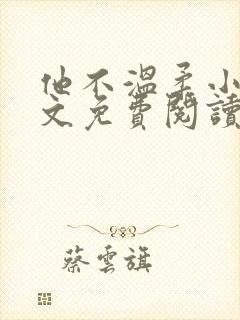 他不溫柔小
文免費閱讀
蔡雲旗